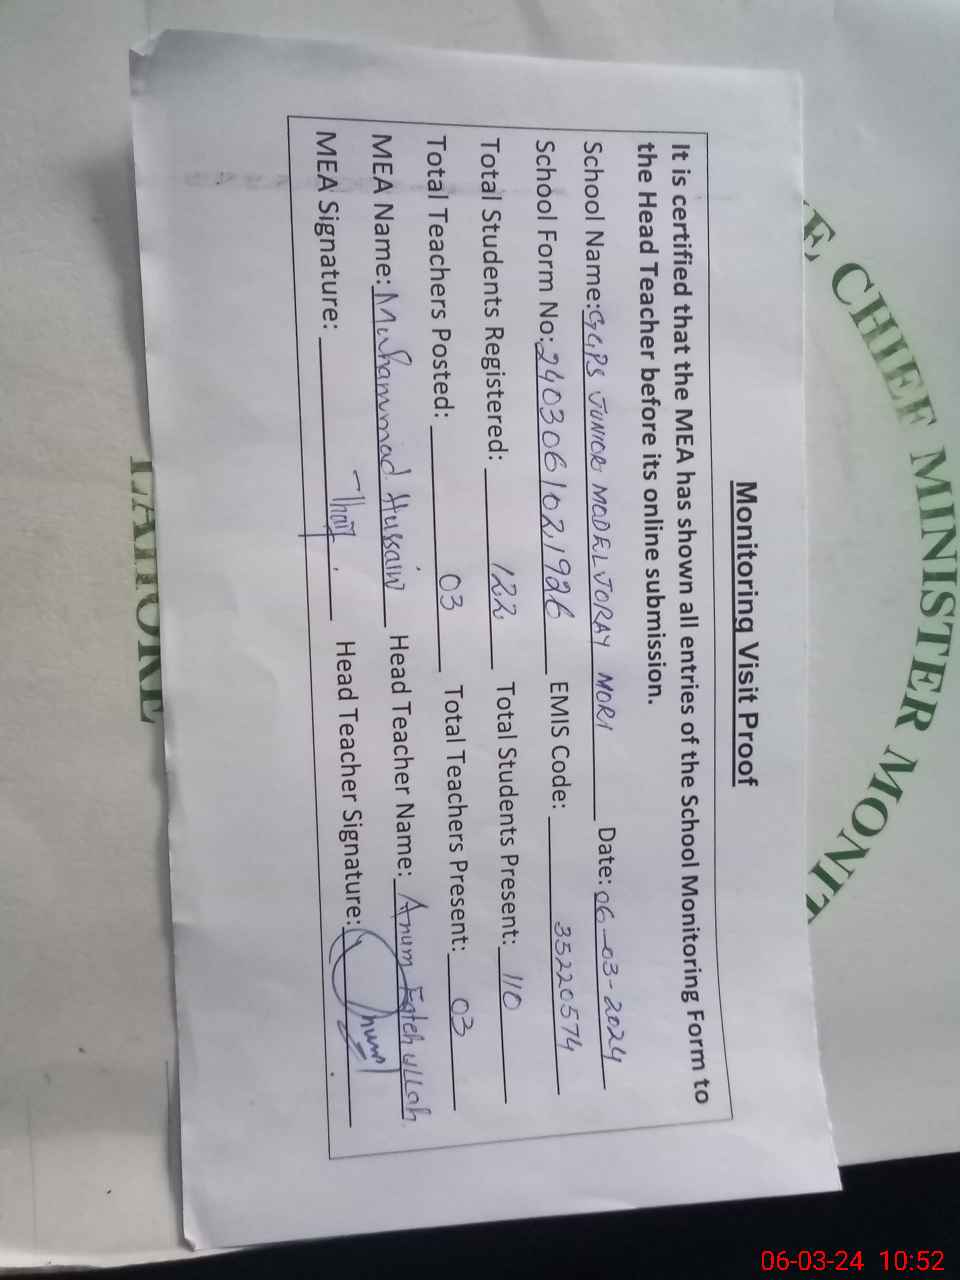 Monitoring Visit Proof
It is certified that the MEA has shown all entries of the School Monitoring Form to
the Head Teacher before its online submission.
School Name: GGPS JUNIOR MODEL JORAY MORI Date: 06-03-2024
School Form No: 2403061021926 EMIS Code: 35220574
Total Students Registered: 122 Total Students Present: 110
Total Teachers Posted: 03 Total Teachers Present: 03
MEA Name: Muhammad Hussain Head Teacher Name: Anum Fateh ullah
MEA Signature: Head Teacher Signature:
E CHIEF MINISTER MONI
LAHORE
06-03-24 10:52